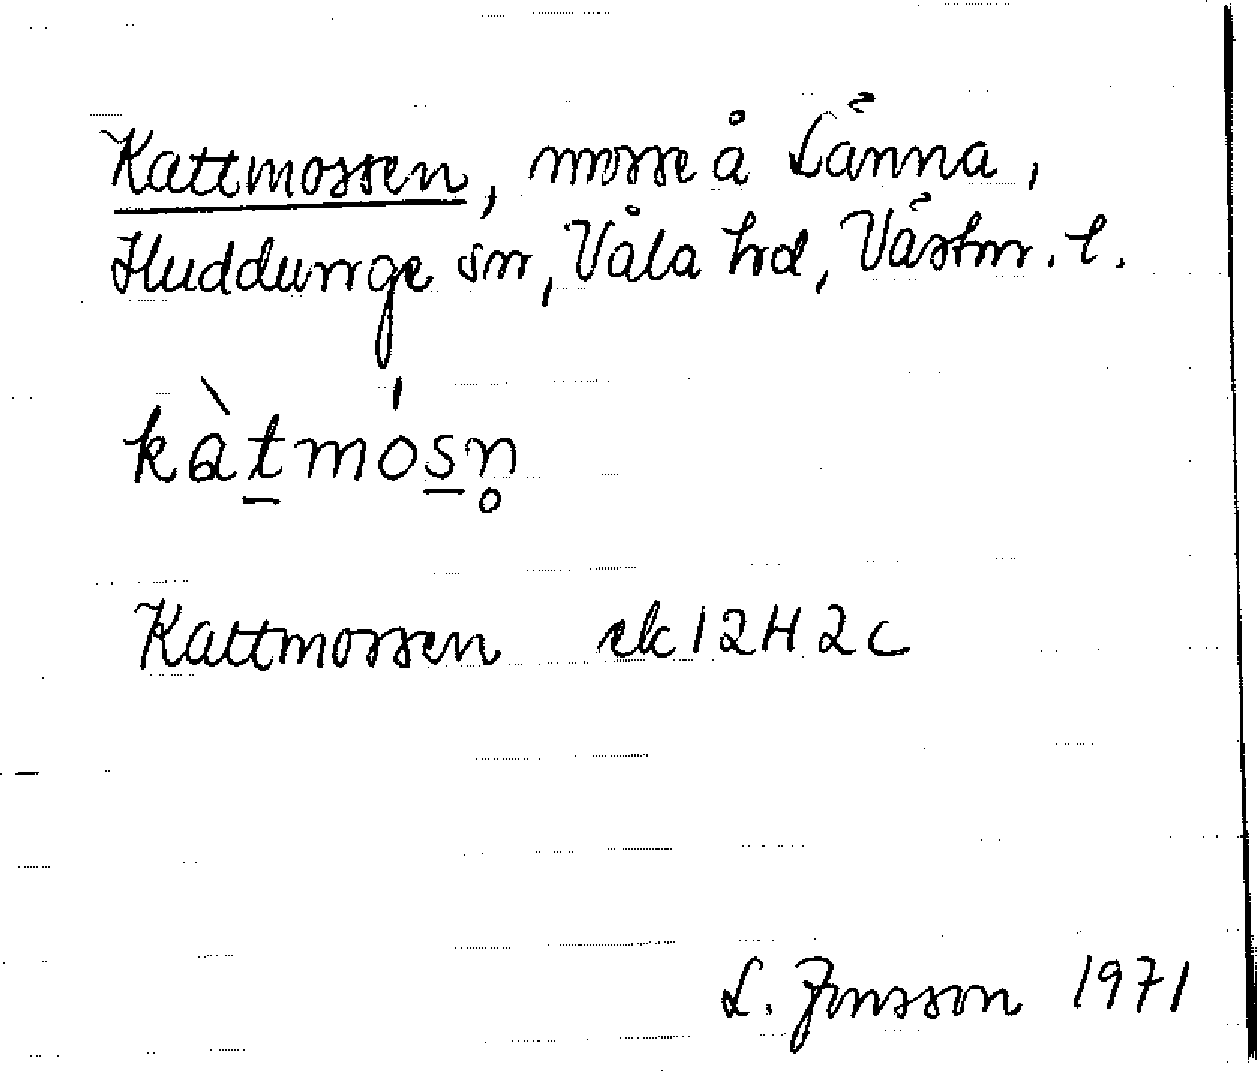 Kattmossen, mosse å Länna,
Huddunge sn, Våla hd, Västm. l.
kàt̠mós̠n̥
Kattmossen ek 12H2c
L. Jonsson 1971